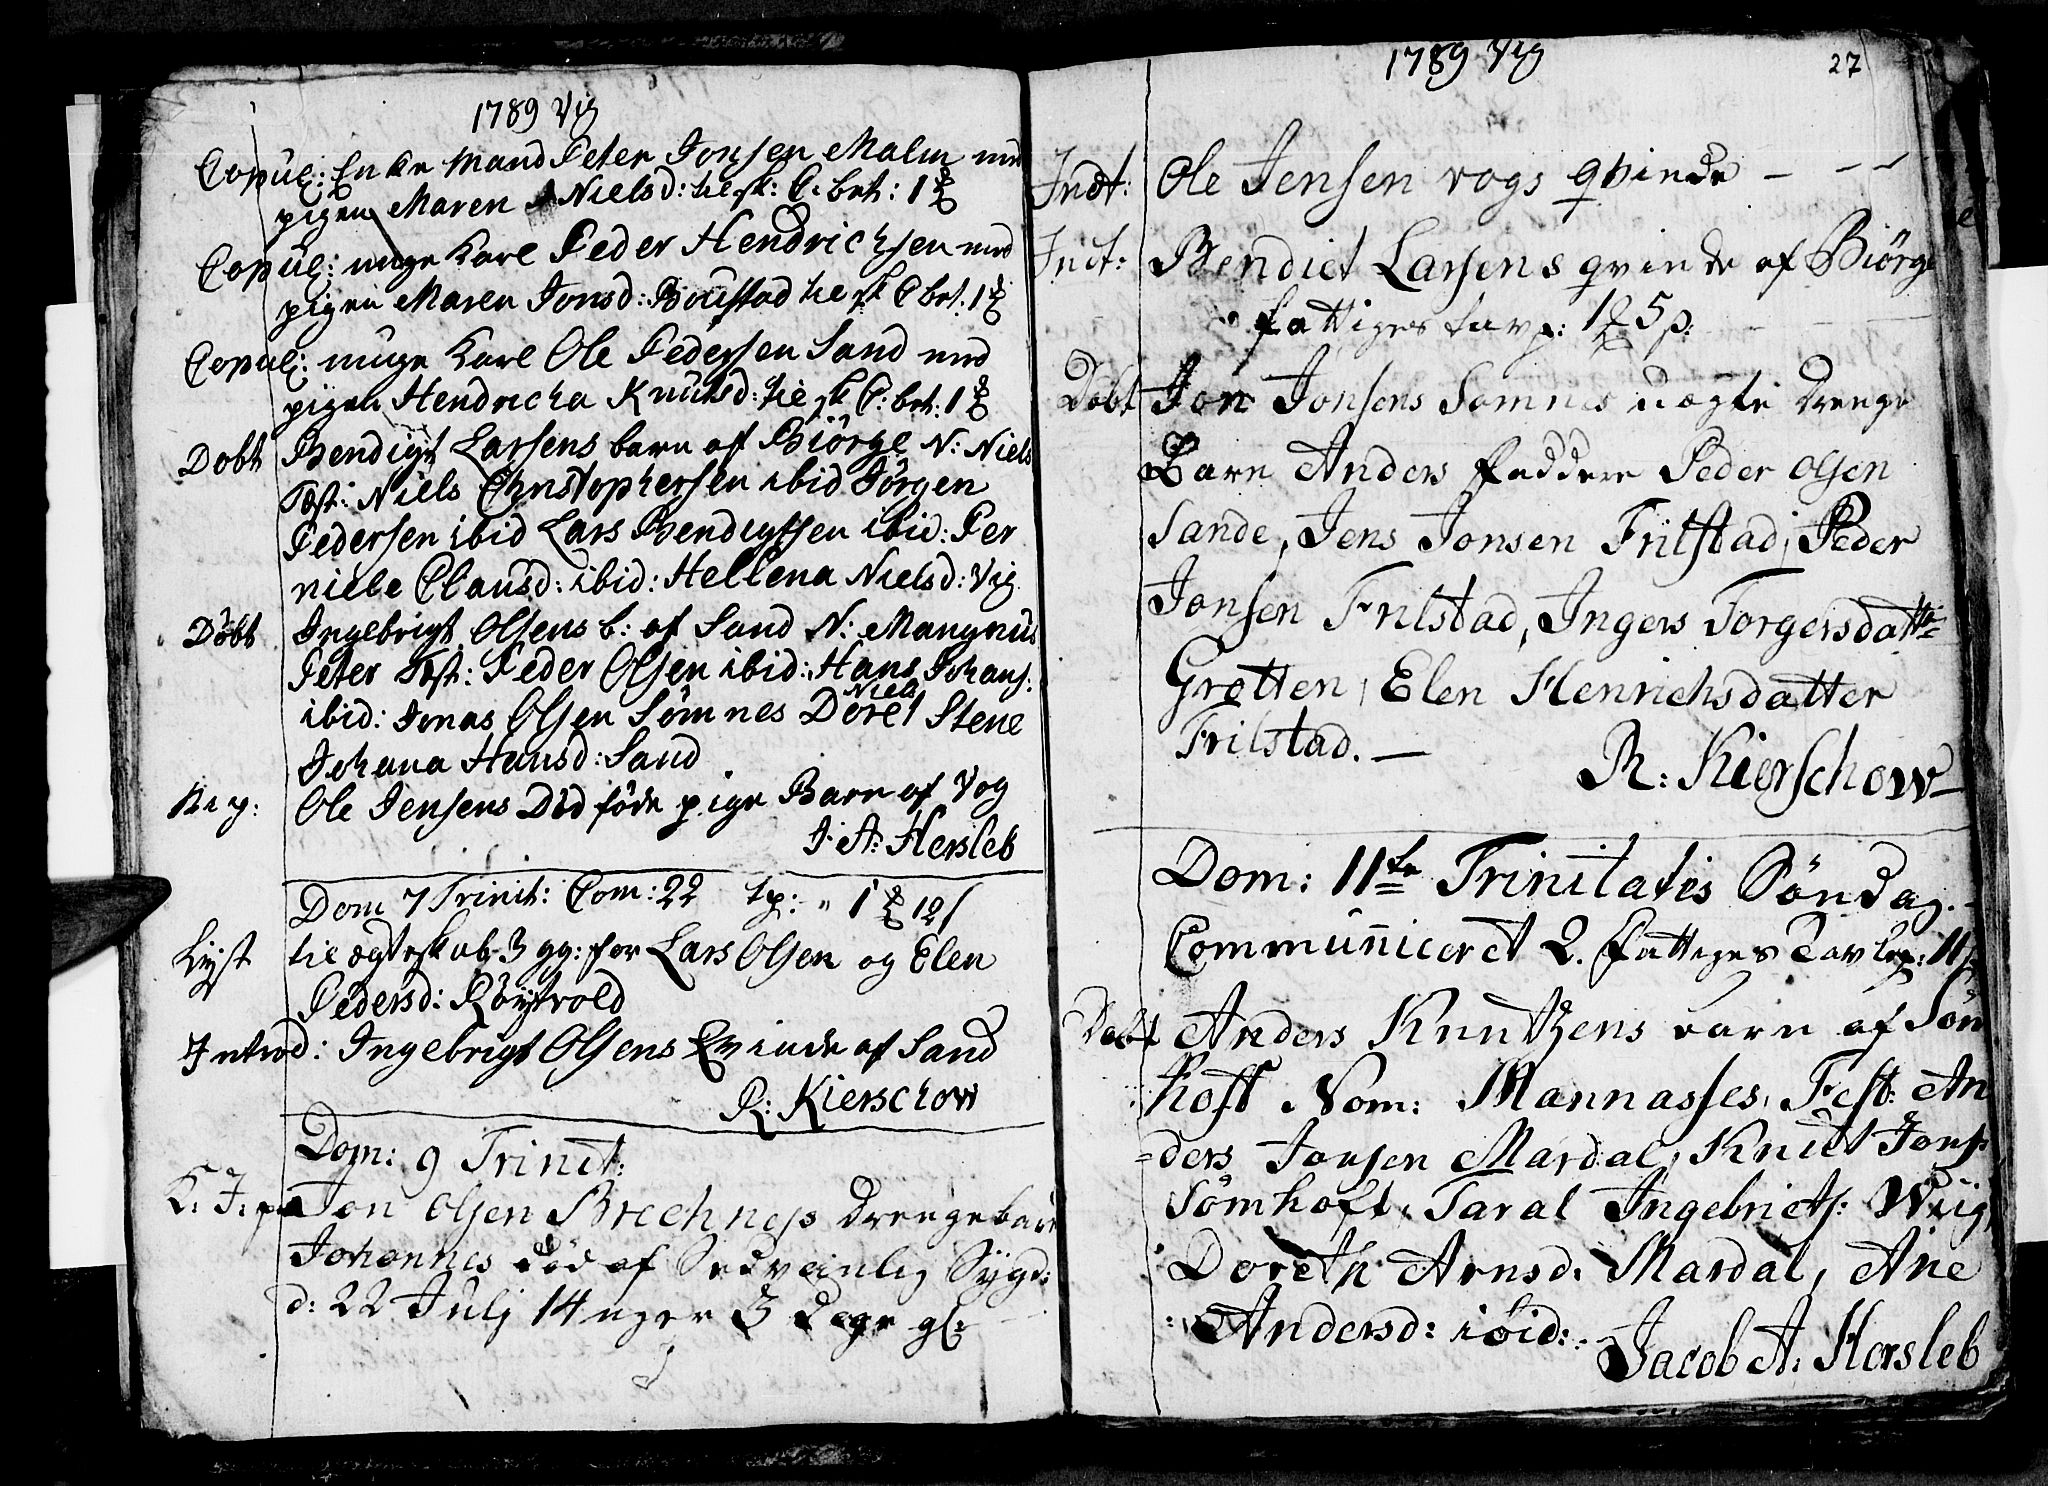 1789 Vig
Copul: Enke Mand Peter Jonsen Malm med
pigen Maren Nielsd: til sk: C. bet: 1
Copul: unge Karl Peder Hendrichsen med
pigen Maren Jonsd: Boustad til sk C bet. 1
Copul: unge Karl Ole Pedersen Sand med
pigen Hendricha Knutsd: til sk C: bet: 1
Dobt Bendigt Larsens barn af Biörge N: Niels
Test: Niels Christophersen ibid Jörgen
Pedersen ibid Lars Bendigtsen ibid: Per
nille Clausd: ibid: Hellena Nielsd: Vig
Döbt Ingebrigt Olsens b: af Sand N: Mangnus
Peter Test: Peder Olsen ibid: Hans Johans:
ibid: Jonas Olsen Sömnes Doret Niels Stene
Johana Hansd: Sand
Ole Jensens Död föde pige Barn af Vog
J: A: Hersleb
Dom 7 Trinit: Com: 22 tp: 1 12
Lyst til ægteskab 3 gg: for Lars Olsen og Elen
Pedersd: Röytvold
Introd: Ingebrigt Olsens Qvinde af Sand
R: Kierschow
Dom: 9 Trinit:
K. J. p Jon Olsen Brechnes Drengebarn
Johannes död af Sædvanlig Sygd:
d: 22 Julj 14 uger 3 Dage gl:
1789 Vig
27
Indt: Ole Jensen vogs qvinde
Indt: Bendict Larsens qvinde af Biörge
fattiges tavl: 1 5
Döbt Jon Jonsens Somnes ægte Drenge
Barn Anders Faddere Peder Olsen
Sande, Jens Jonsen Frilstad, Peder
Jonsen Frilstad, Ingers Torgersdatter
Gretten, Elen Henrichsdatter
Frilstad.
R: Kierschow
Dom: 11te Trinitatis Söndag.
Communiceret 2. Fattiges Tavle: 11
Döbt Anders Knutzens barn af Söm
hoft Nom: Mannasses, Test: An
ders Jonsen Mardal, Knut Jons:
Sömhoft, Taral Ingebricts: Wiig
Doreth Arnsd: Mardal, Ane
Andersd: ibid:
Jacob A: Hersleb